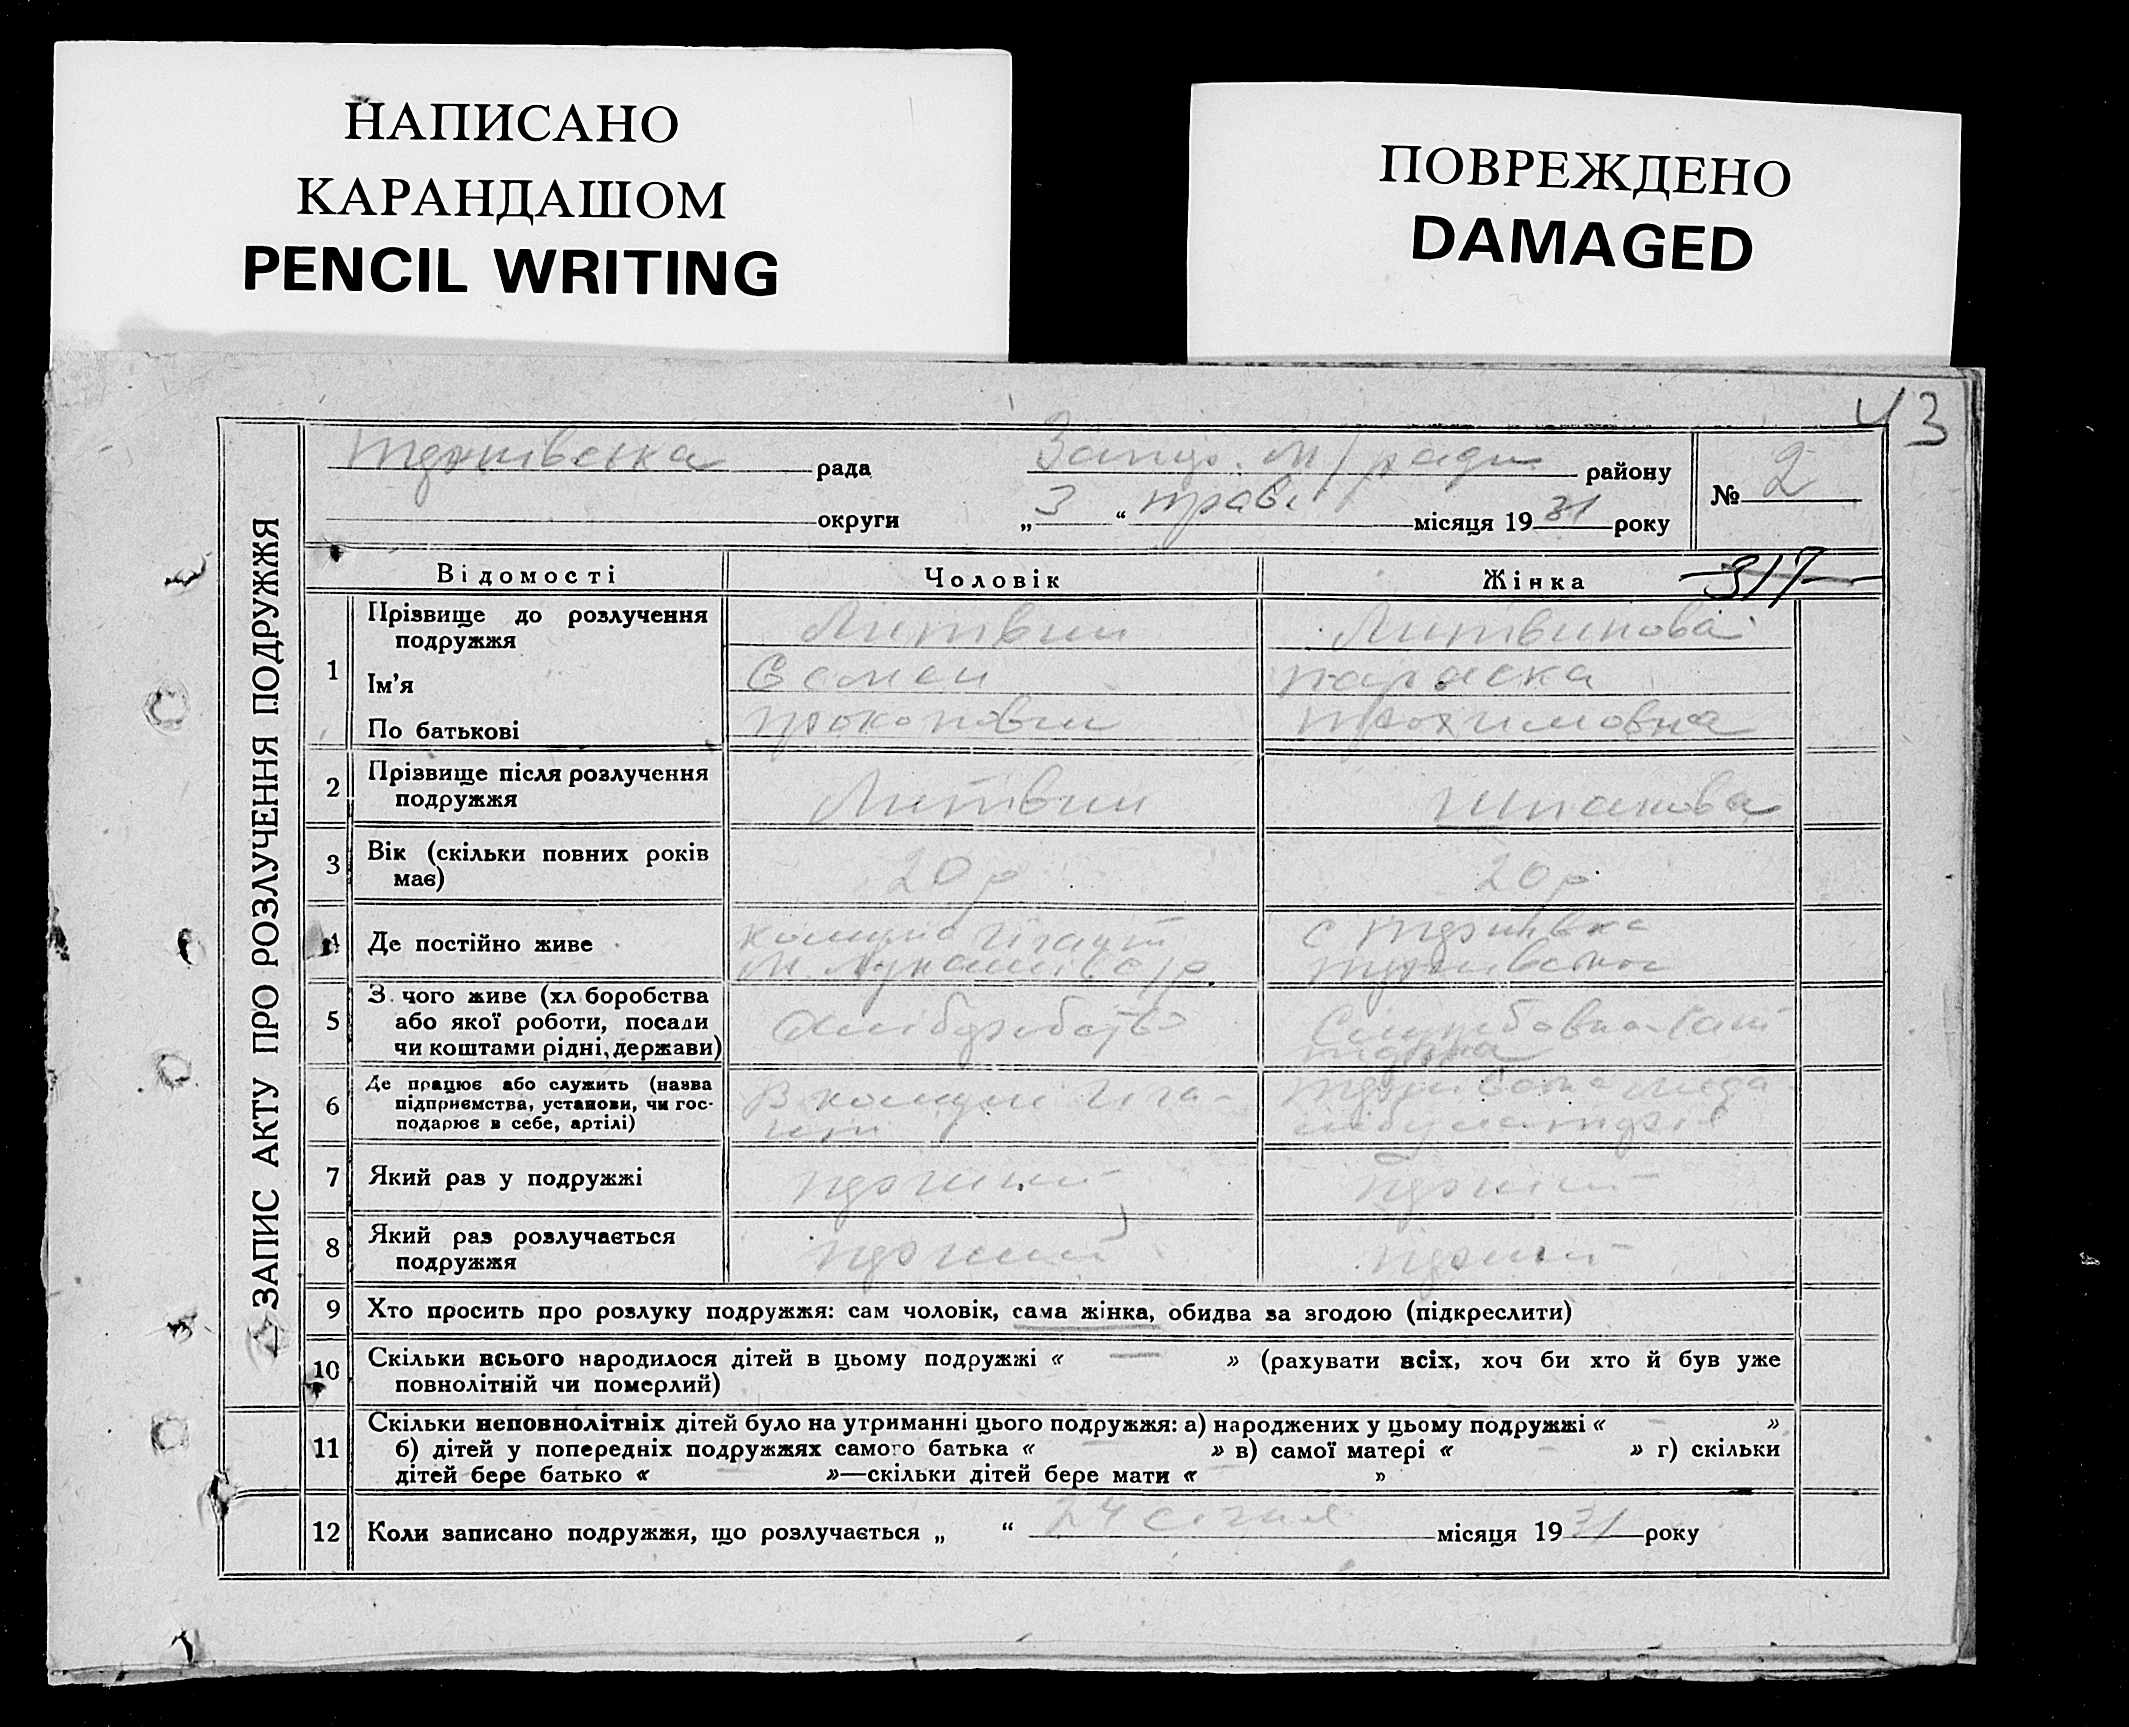 НАПИСАНО
КАРАНДАШОМ
PENCIL WRITING
ПОВРЕЖДЕНО
DAMAGED
43
ЗАПИС АКТУ ПРО РОЗЛУЧЕННЯ ПОДРУЖЖЯ
рада Запор. М/ради району
№ 2
округи „ 3 “ трав. місяця 19 31 року
Відомості Чоловік Жінка 317
1 Прізвище до розлучення подружжя Литвин Литвинова
Ім'я Семен Параска
По батькові Прокопович Трохимовна
2 Прізвище після розлучення подружжя Литвин Шпакова
3 Вік (скільки повних років має) 20 р 20 р.
4 Де постійно живе
5 З чого живе (хл боробства або якої роботи, посади чи коштами рідні, держави)
6 Де працює або служить (назва підприємства, установи, чи господарює в себе, артілі) В комуні Гіга-
7 Який раз у подружжі
8 Який раз розлучається подружжя
9 Хто просить про розлуку подружжя: сам чоловік, сама жінка, обидва за згодою (підкреслити)
10 Скільки всього народилося дітей в цьому подружжі « — » (рахувати всіх, хоч би хто й був уже
повнолітній чи померлий)
11 Скільки неповнолітніх дітей було на утриманні цього подружжя: а) народжених у цьому подружжі « — »
б) дітей у попередніх подружжях самого батька « — » в) самої матері « — » г) скільки
дітей бере батько « — »—скільки дітей бере мати « — »
12 Коли записано подружжя, що розлучається „ “ 24 січня місяця 19 31 року